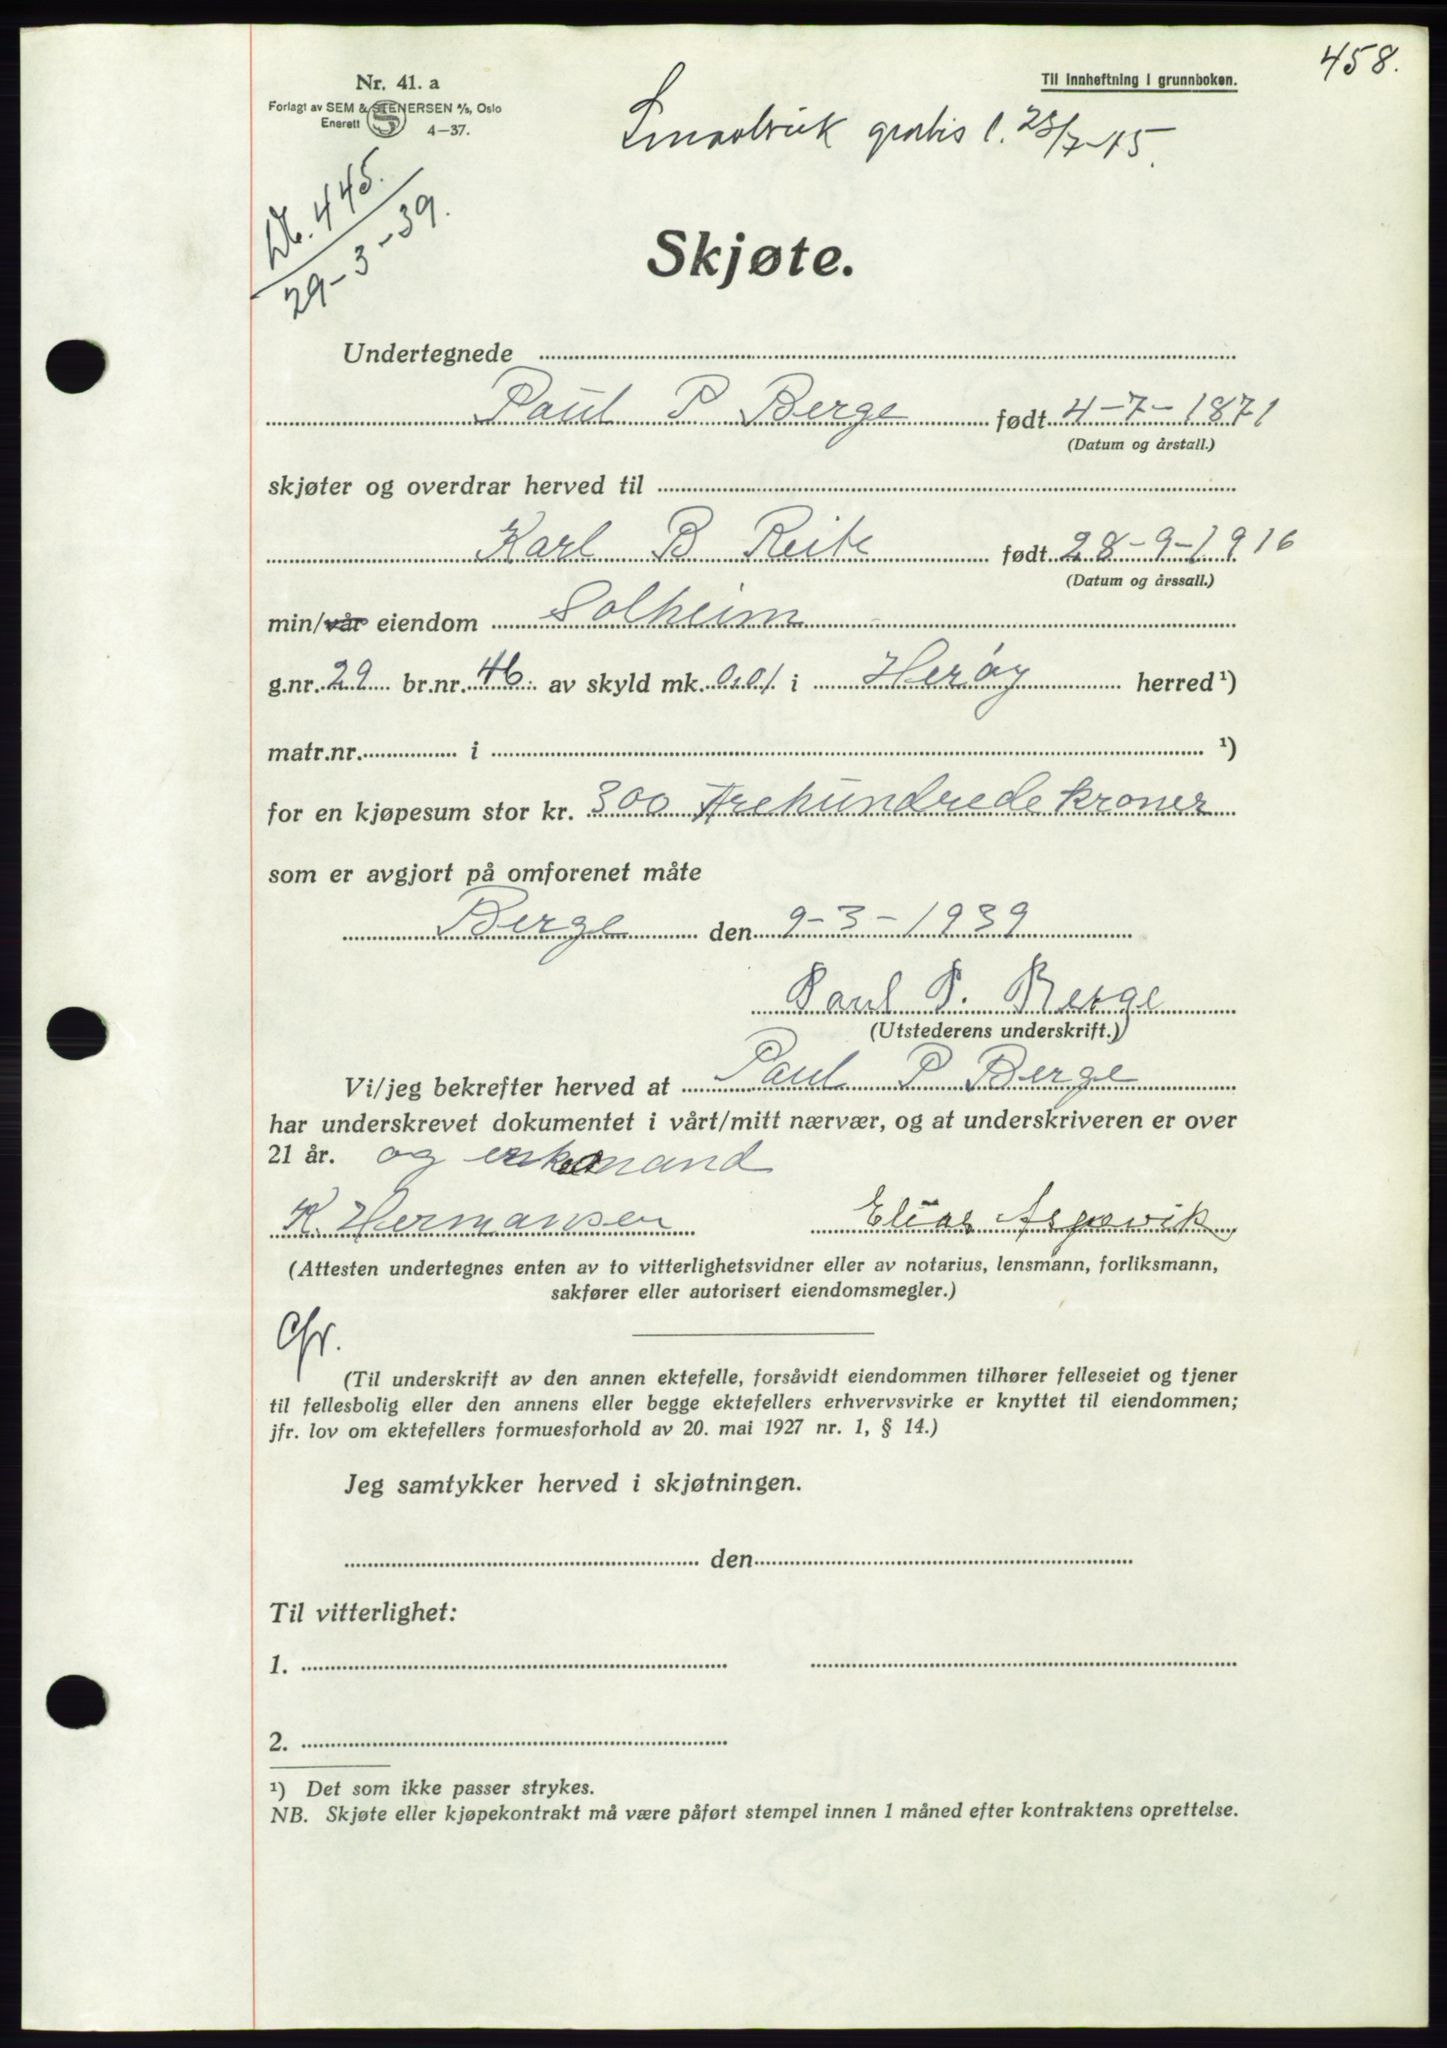 458.
Nr. 41. a
Til innheftning i grunnboken.
Forlagt av SEM & STENERSEN A/S, Oslo
Enerett S 4-37.
gratis l. 23/7-45.
Nr. 445.
29-3-39.
Skjøte.
Undertegnede
Paul P Berge født 4-7-1871
(Datum og årstall.)
skjøter og overdrar herved til
Karl B Reite født 28-9-1916
(Datum og årssall.)
min/vår eiendom Solheim
g.nr. 29 br.nr. 46 av skyld mk. 0,01 i Herøy herred¹)
matr.nr. i ¹)
for en kjøpesum stor kr. 300 Trehundrede kroner
som er avgjort på omforenet måte
Berge den 9-3-1939
Paul P. Berge
(Utstederens underskrift.)
Vi/jeg bekrefter herved at Paul P Berge
har underskrevet dokumentet i vårt/mitt nærvær, og at underskriveren er over
21 år. og enkemand
K. Hermansen Elias Aspevik
(Attesten undertegnes enten av to vitterlighetsvidner eller av notarius, lensmann, forliksmann,
sakfører eller autorisert eiendomsmegler.)
Cfr.
(Til underskrift av den annen ektefelle, forsåvidt eiendommen tilhører felleseiet og tjener
til fellesbolig eller den annens eller begge ektefellers erhvervsvirke er knyttet til eiendommen;
jfr. lov om ektefellers formuesforhold av 20. mai 1927 nr. 1, § 14.)
Jeg samtykker herved i skjøtningen.
den
Til vitterlighet:
1.
2.
¹) Det som ikke passer strykes.
NB. Skjøte eller kjøpekontrakt må være påført stempel innen 1 måned efter kontraktens oprettelse.